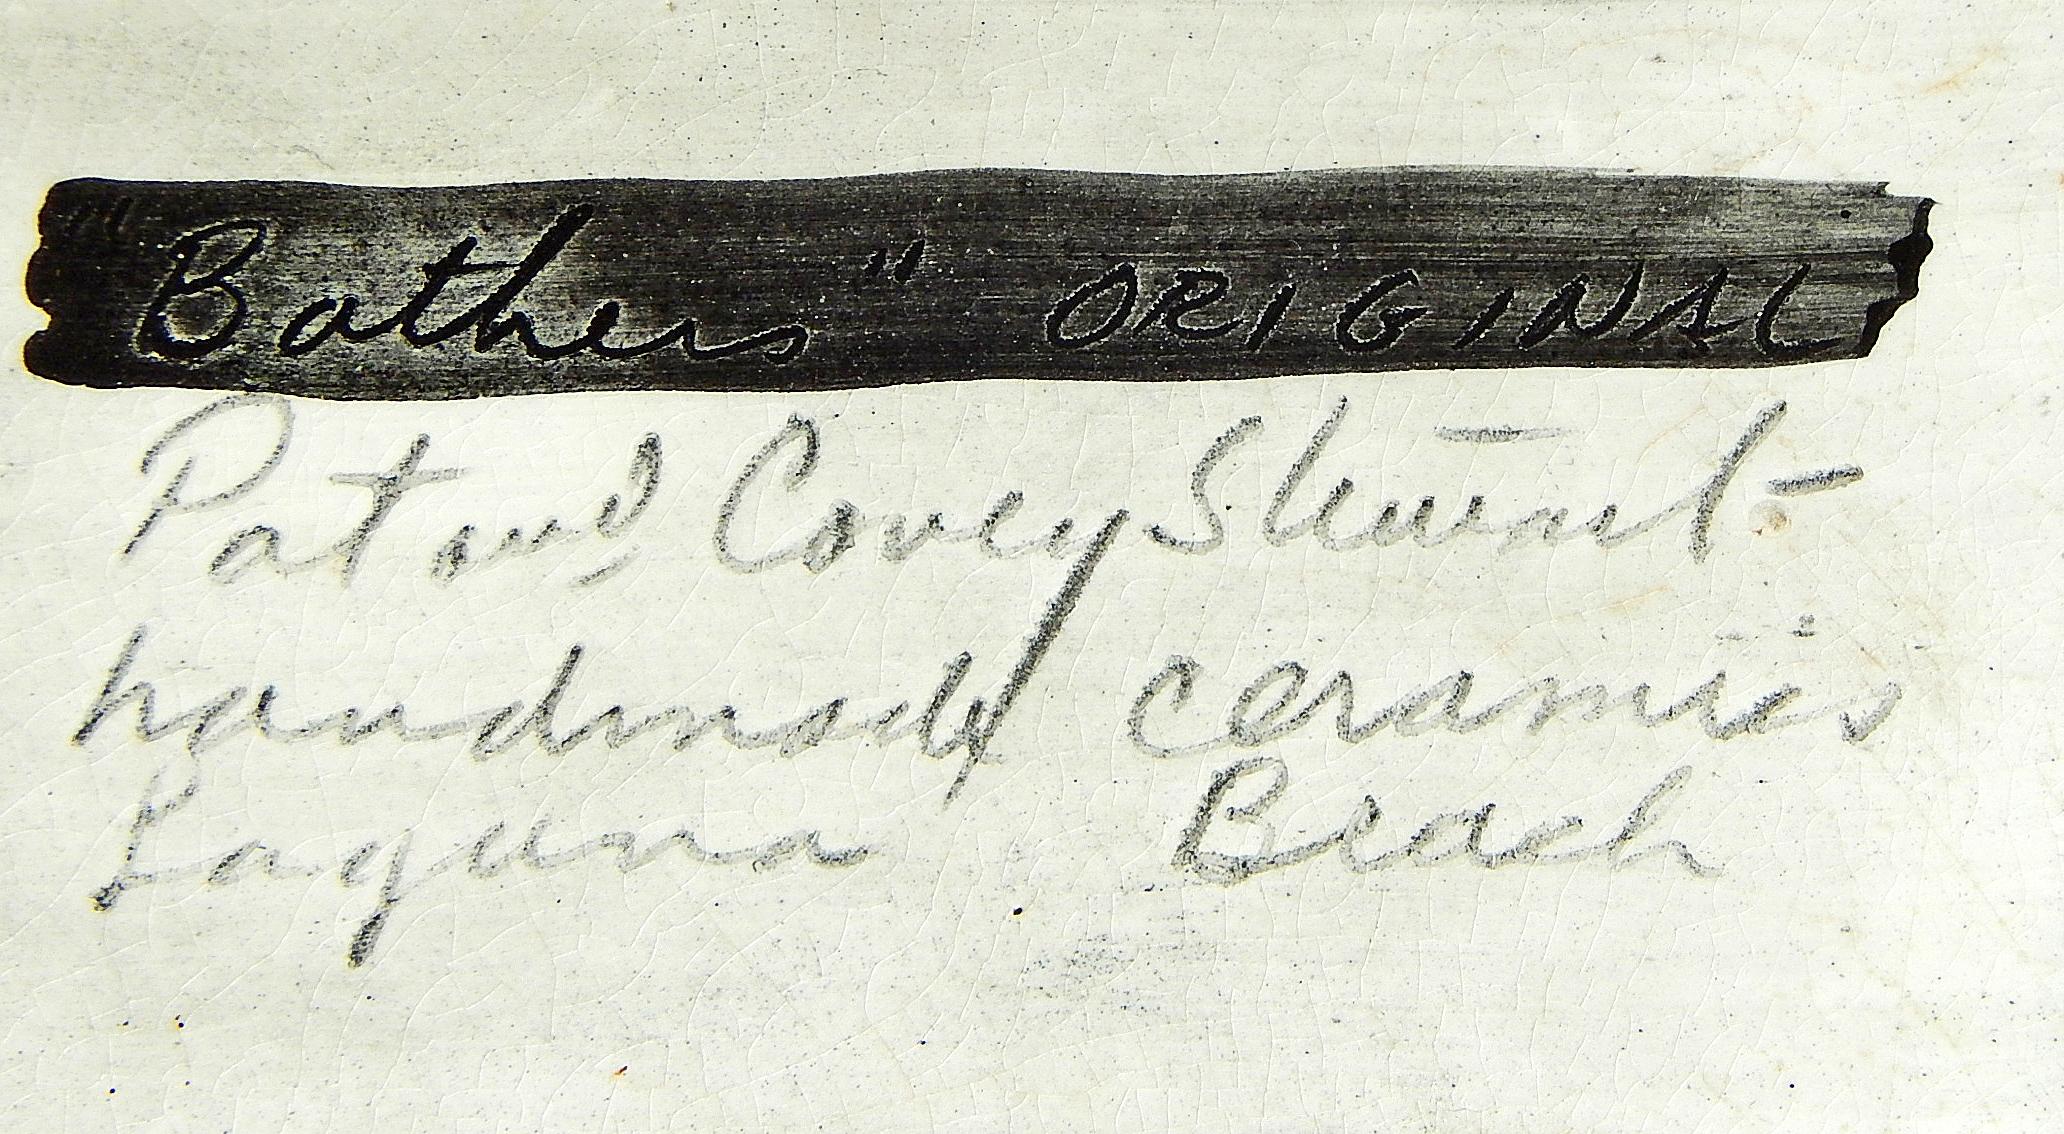 "Bathers" ORIGINAL
Pat and Covey Stewart -
handmade ceramics
Laguna Beach